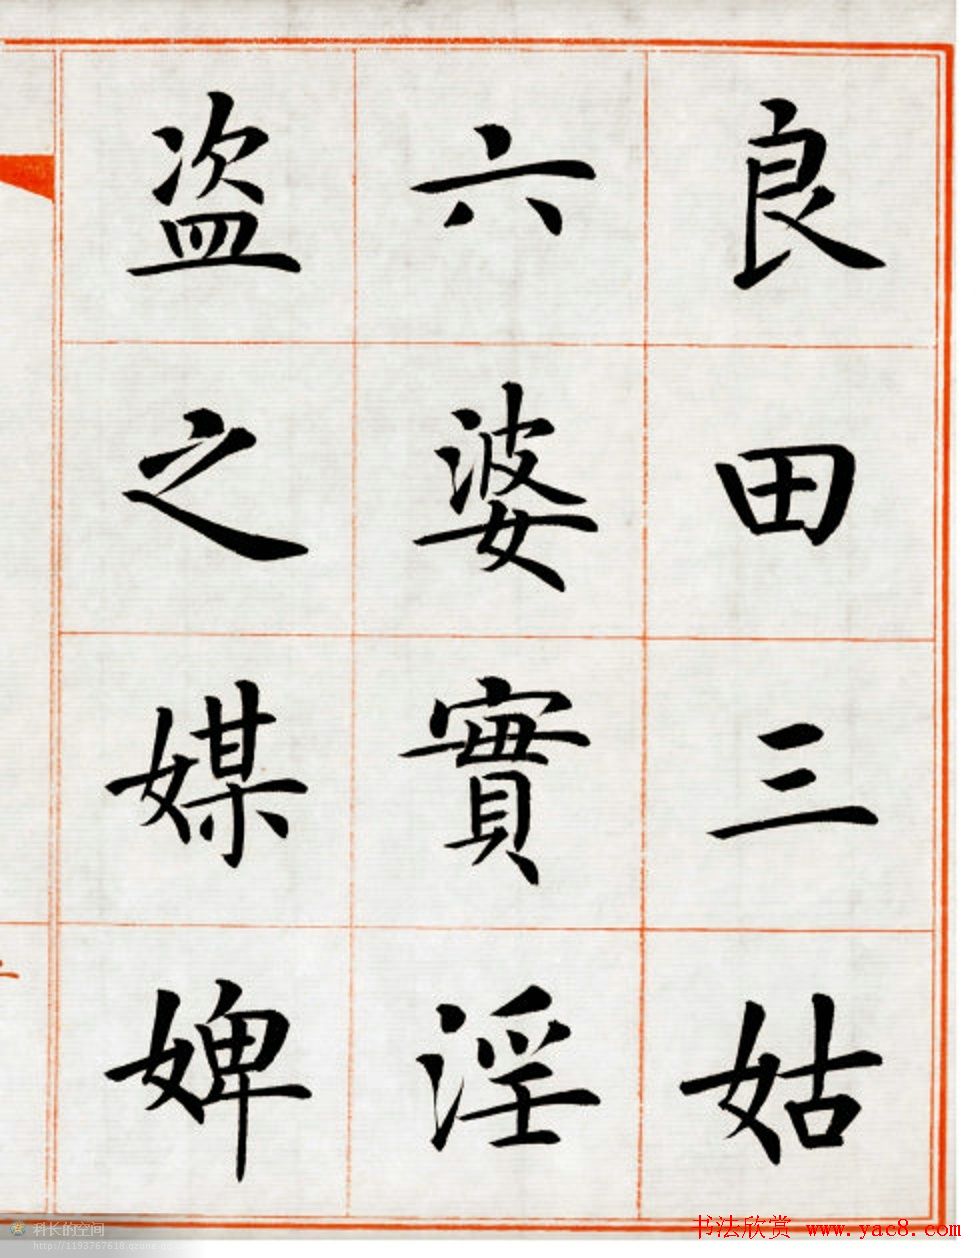 良田三姑
六婆實淫
盗之媒婢
科长的空间
http://1193767618.qzone.qq.com
书法欣赏 www.yac8.com